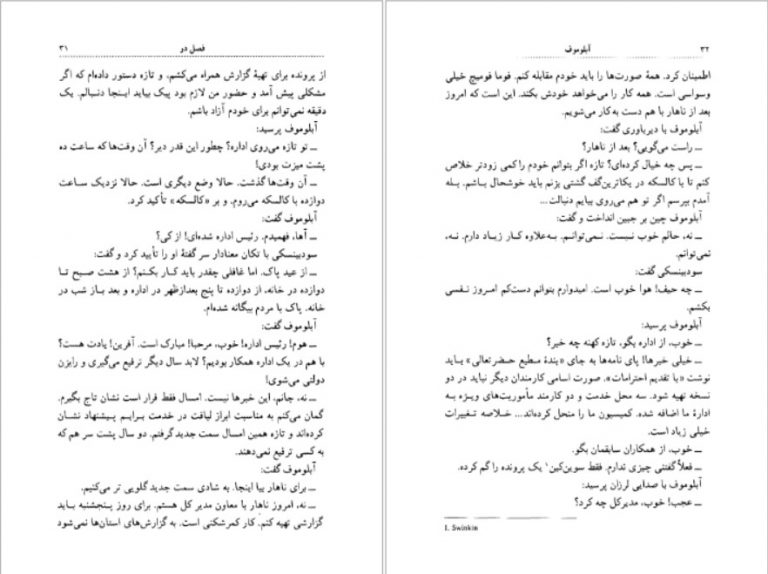 فصل دو
۳۱
از پرونده برای تهیهٔ گزارش همراه می‌کشم، و تازه دستور داده‌ام که اگر
مشکلی پیش آمد و حضور من لازم بود پیک بیاید اینجا دنبالم. یک
دقیقه نمی‌توانم برای خودم آزاد باشم.
آبلوموف پرسید:
ــ تو تازه می‌روی اداره؟ چطور این قدر دیر؟ آن وقت‌ها که ساعت ده
پشت میزت بودی!
ــ آن وقت‌ها گذشت. حالا وضع دیگری است. حالا نزدیک ساعت
دوازده با کالسکه می‌روم. و بر «کالسکه» تأکید کرد.
آبلوموف گفت:
ــ آها، فهمیدم. رئیس اداره شده‌ای! از کی؟
سودبینسکی با تکان معنادار سر گفتهٔ او را تأیید کرد و گفت:
ــ از عید پاک. اما غافلی چقدر باید کار بکنم؟ از هشت صبح تا
دوازده در خانه، از دوازده تا پنج بعدازظهر در اداره و بعد باز شب در
خانه. پاک با مردم بیگانه شده‌ام.
آبلوموف گفت:
ــ هوم! رئیس اداره! خوب، مرحبا! مبارک است. آفرین! یادت هست؟
با هم در یک اداره همکار بودیم؟ لابد سال دیگر ترفیع می‌گیری و رایزن
دولتی می‌شوی!
ــ نه، جانم، این خبرها نیست. امسال فقط قرار است نشان تاج بگیرم.
گمان می‌کنم به مناسبت ابراز لیاقت در خدمت برایم پیشنهاد نشان
کرده‌اند و تازه همین امسال سمت جدید گرفتم. دو سال پشت سر هم که
به کسی ترفیع نمی‌دهند.
آبلوموف گفت:
ــ برای ناهار بیا اینجا. به شادی سمت جدید گلویی تر می‌کنیم.
ــ نه، امروز ناهار با معاون مدیر کل هستم. برای روز پنجشنبه باید
گزارشی تهیه کنم. کار کمرشکنی است. به گزارش‌های استان‌ها نمی‌شود
۳۲
آبلوموف
اطمینان کرد. همهٔ صورت‌ها را باید خودم مقابله کنم. فوما فومیچ خیلی
وسواسی است. همه کار را می‌خواهد خودش بکند. این است که امروز
بعد از ناهار با هم دست به کار می‌شویم.
آبلوموف با دیرباوری گفت:
ــ راست می‌گویی؟ بعد از ناهار؟
ــ پس چه خیال کرده‌ای؟ تازه اگر بتوانم خودم را کمی زودتر خلاص
کنم تا با کالسکه در یکاترین‌گف گشتی بزنم باید خوشحال باشم. بله
آمدم بپرسم اگر تو هم می‌روی بیایم دنبالت...
آبلوموف چین بر جبین انداخت و گفت:
ــ نه، حالم خوب نیست. نمی‌توانم. به‌علاوه کار زیاد دارم. نه،
نمی‌توانم.
سودبینسکی گفت:
ــ چه حیف! هوا خوب است. امیدوارم بتوانم دست‌کم امروز نفسی
بکشم.
آبلوموف پرسید:
ــ خوب، از اداره بگو، تازه کهنه چه خبر؟
ــ خیلی خبرها! پای نامه‌ها به جای «بندهٔ مطیع حضرتعالی» باید
نوشت «با تقدیم احترامات». صورت اسامی کارمندان دیگر نباید در دو
نسخه تهیه شود. سه محل خدمت و دو کارمند مأموریت‌های ویژه به
ادارهٔ ما اضافه شده. کمیسیون ما را منحل کرده‌اند... خلاصه تغییرات
خیلی زیاد است.
ــ خوب، از همکاران سابقمان بگو.
ــ فعلاً گفتنی چیزی ندارم. فقط سوین‌کین۱ یک پرونده را گم کرده.
آبلوموف با صدایی لرزان پرسید:
ــ عجب! خوب، مدیرکل چه کرد؟
1. Swinkin